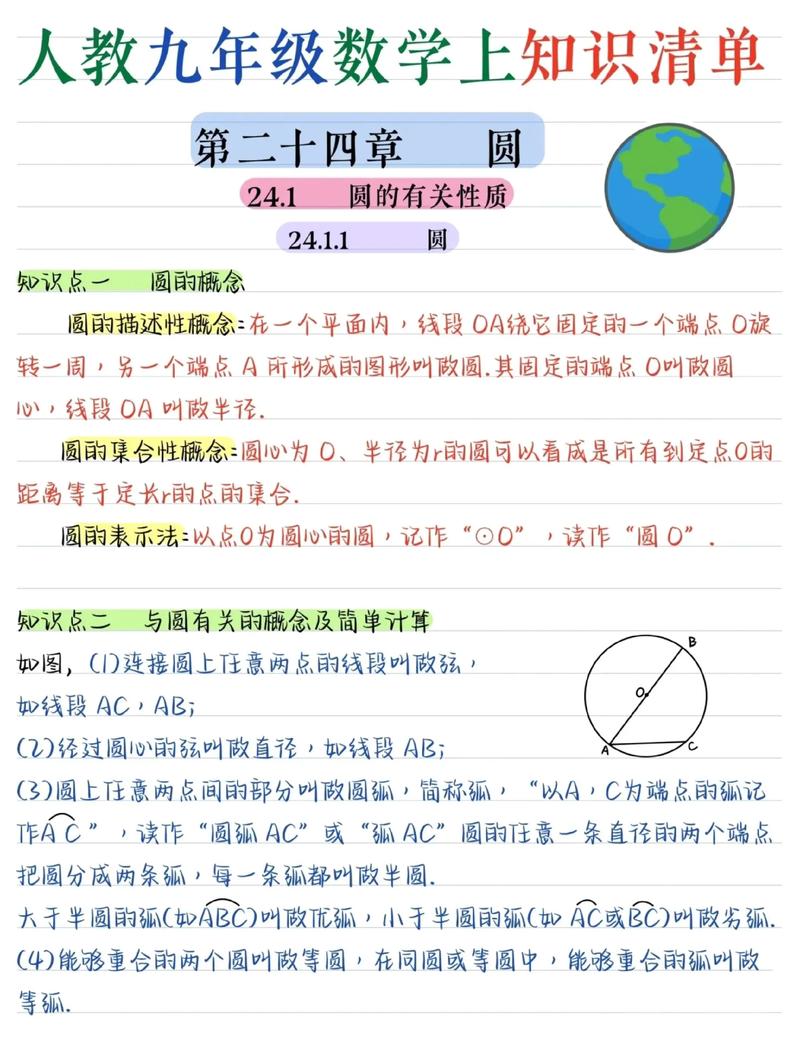 人教九年级数学上知识清单
第二十四章 圆
24.1 圆的有关性质
24.1.1 圆
知识点一 圆的概念
圆的描述性概念:在一个平面内，线段 OA绕它固定的一个端点 O旋
转一周，另一个端点 A 所形成的图形叫做圆.其固定的端点 O叫做圆
心，线段 OA 叫做半径.
圆的集合性概念:圆心为 O、半径为r的圆可以看成是所有到定点O的
距离等于定长r的点的集合.
圆的表示法:以点O为圆心的圆，记作“⊙O”，读作“圆 O”.
知识点二 与圆有关的概念及简单计算
如图，(1)连接圆上任意两点的线段叫做弦，
如线段 AC，AB;
(2)经过圆心的弦叫做直径，如线段 AB;
(3)圆上任意两点间的部分叫做圆弧，简称弧，“以A，C为端点的弧记
作A C”，读作“圆弧 AC”或“弧 AC”圆的任意一条直径的两个端点
把圆分成两条弧，每一条弧都叫做半圆.
大于半圆的弧(如ABC)叫做优弧，小于半圆的弧(如 AC或BC)叫做劣弧.
(4)能够重合的两个圆叫做等圆，在同圆或等圆中，能够重合的弧叫做
等弧.
B
O
A
C